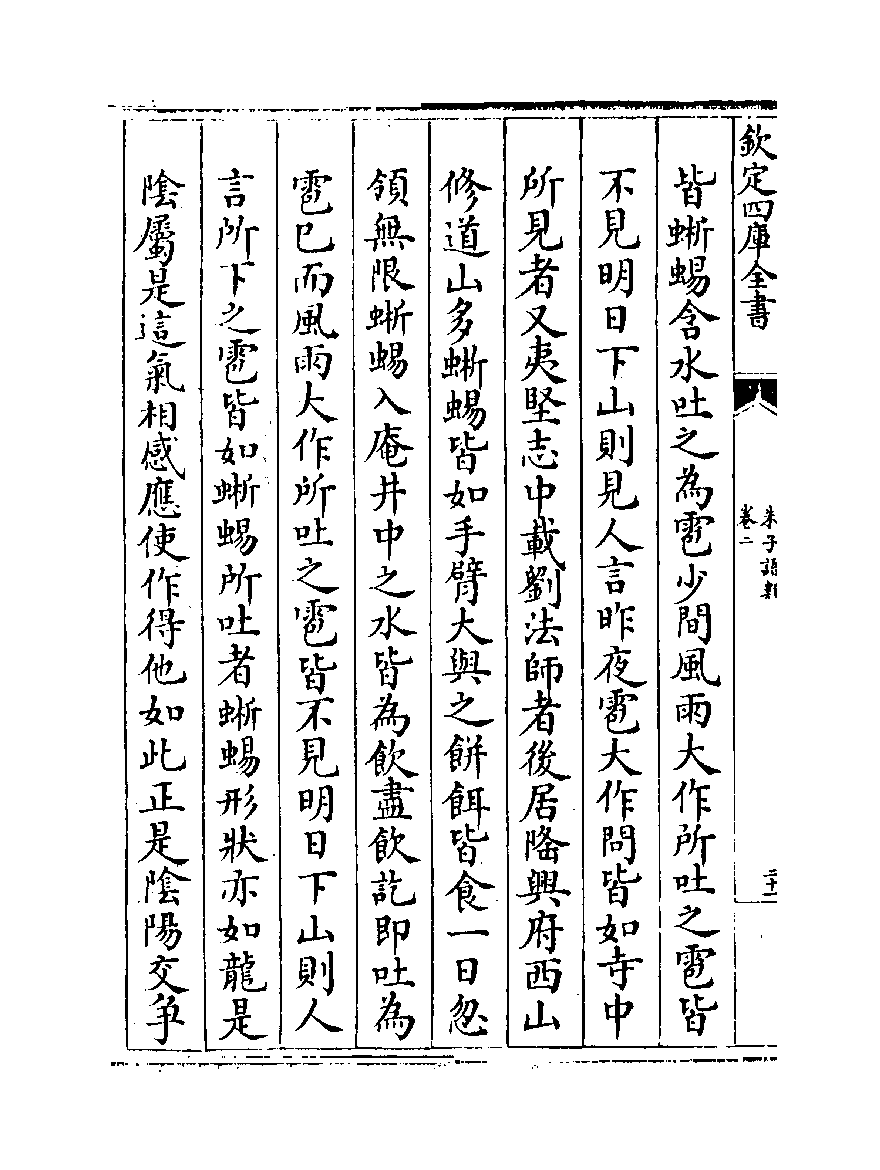 欽定四庫全書
朱子語類
卷二
二十一
皆蜥蜴含水吐之為雹少間風雨大作所吐之雹皆
不見明日下山則見人言昨夜雹大作問皆如寺中
所見者又夷堅志中載劉法師者後居隆興府西山
修道山多蜥蜴皆如手臂大與之餅餌皆食一日忽
領無限蜥蜴入庵井中之水皆為飲盡飲訖即吐為
雹已而風雨大作所吐之雹皆不見明日下山則人
言所下之雹皆如蜥蜴所吐者蜥蜴形狀亦如龍是
陰屬是這氣相感應使作得他如此正是陰陽交爭